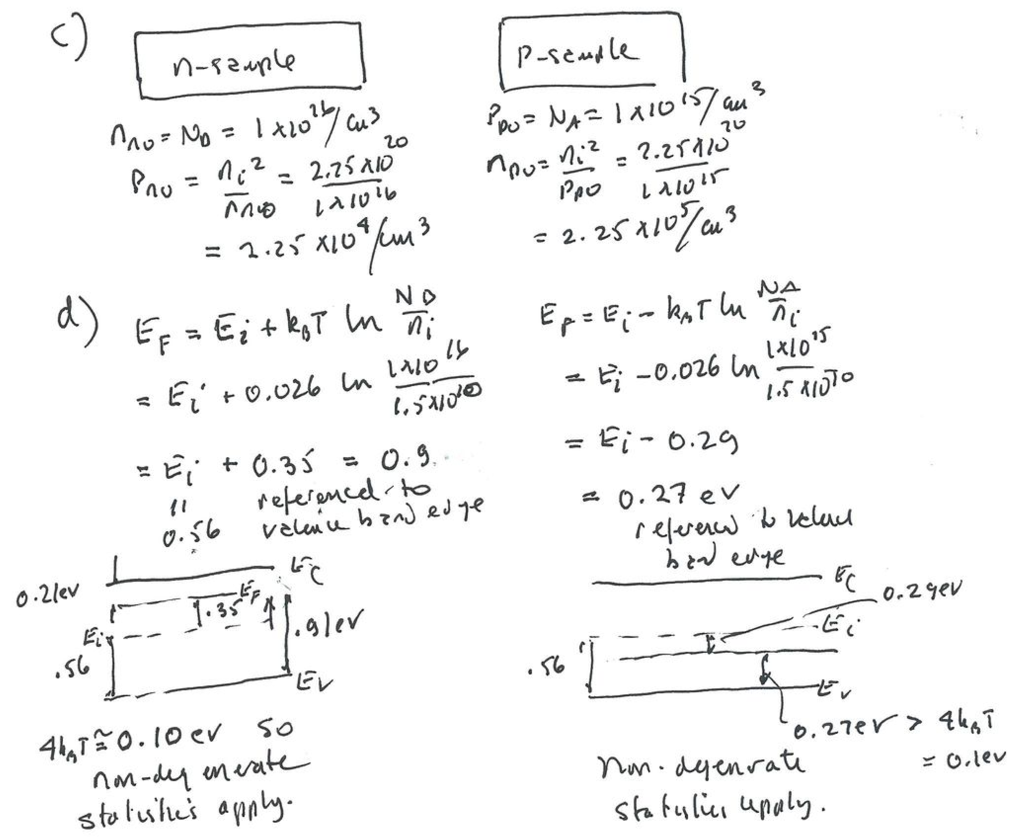 c)
n-sample
n_no = N_D = 1x10^16/cm^3
P_no = n_i^2/n_no = 2.25x10^20/1x10^16
= 2.25 x10^4/cm^3
P-sample
P_po = N_A = 1x10^15/cm^3
n_po = n_i^2/P_po = 2.25x10^20/1x10^15
= 2.25 x10^5/cm^3
d)
E_F = E_i + k_BT ln N_D/n_i
= E_i + 0.026 ln 1x10^16/1.5x10^10
= E_i + 0.35 = 0.9
" referenced to
0.56 valence band edge
E_F = E_i - k_BT ln N_A/n_i
= E_i - 0.026 ln 1x10^15/1.5x10^10
= E_i - 0.29
= 0.27 ev
referenced to valence
band edge
0.21ev
E_C
E_F
.35
E_i
.56
.91ev
E_V
4k_BT ≅ 0.10 ev so
non-degenerate
statistics apply.
E_C
0.29ev
E_i
.56
E_V
0.27ev > 4k_BT
= 0.1ev
non-degenrate
statistics apply.